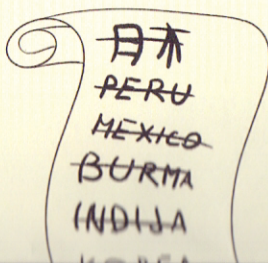 日本
PERU
MEXICO
BURMA
INDIJA
KOREA